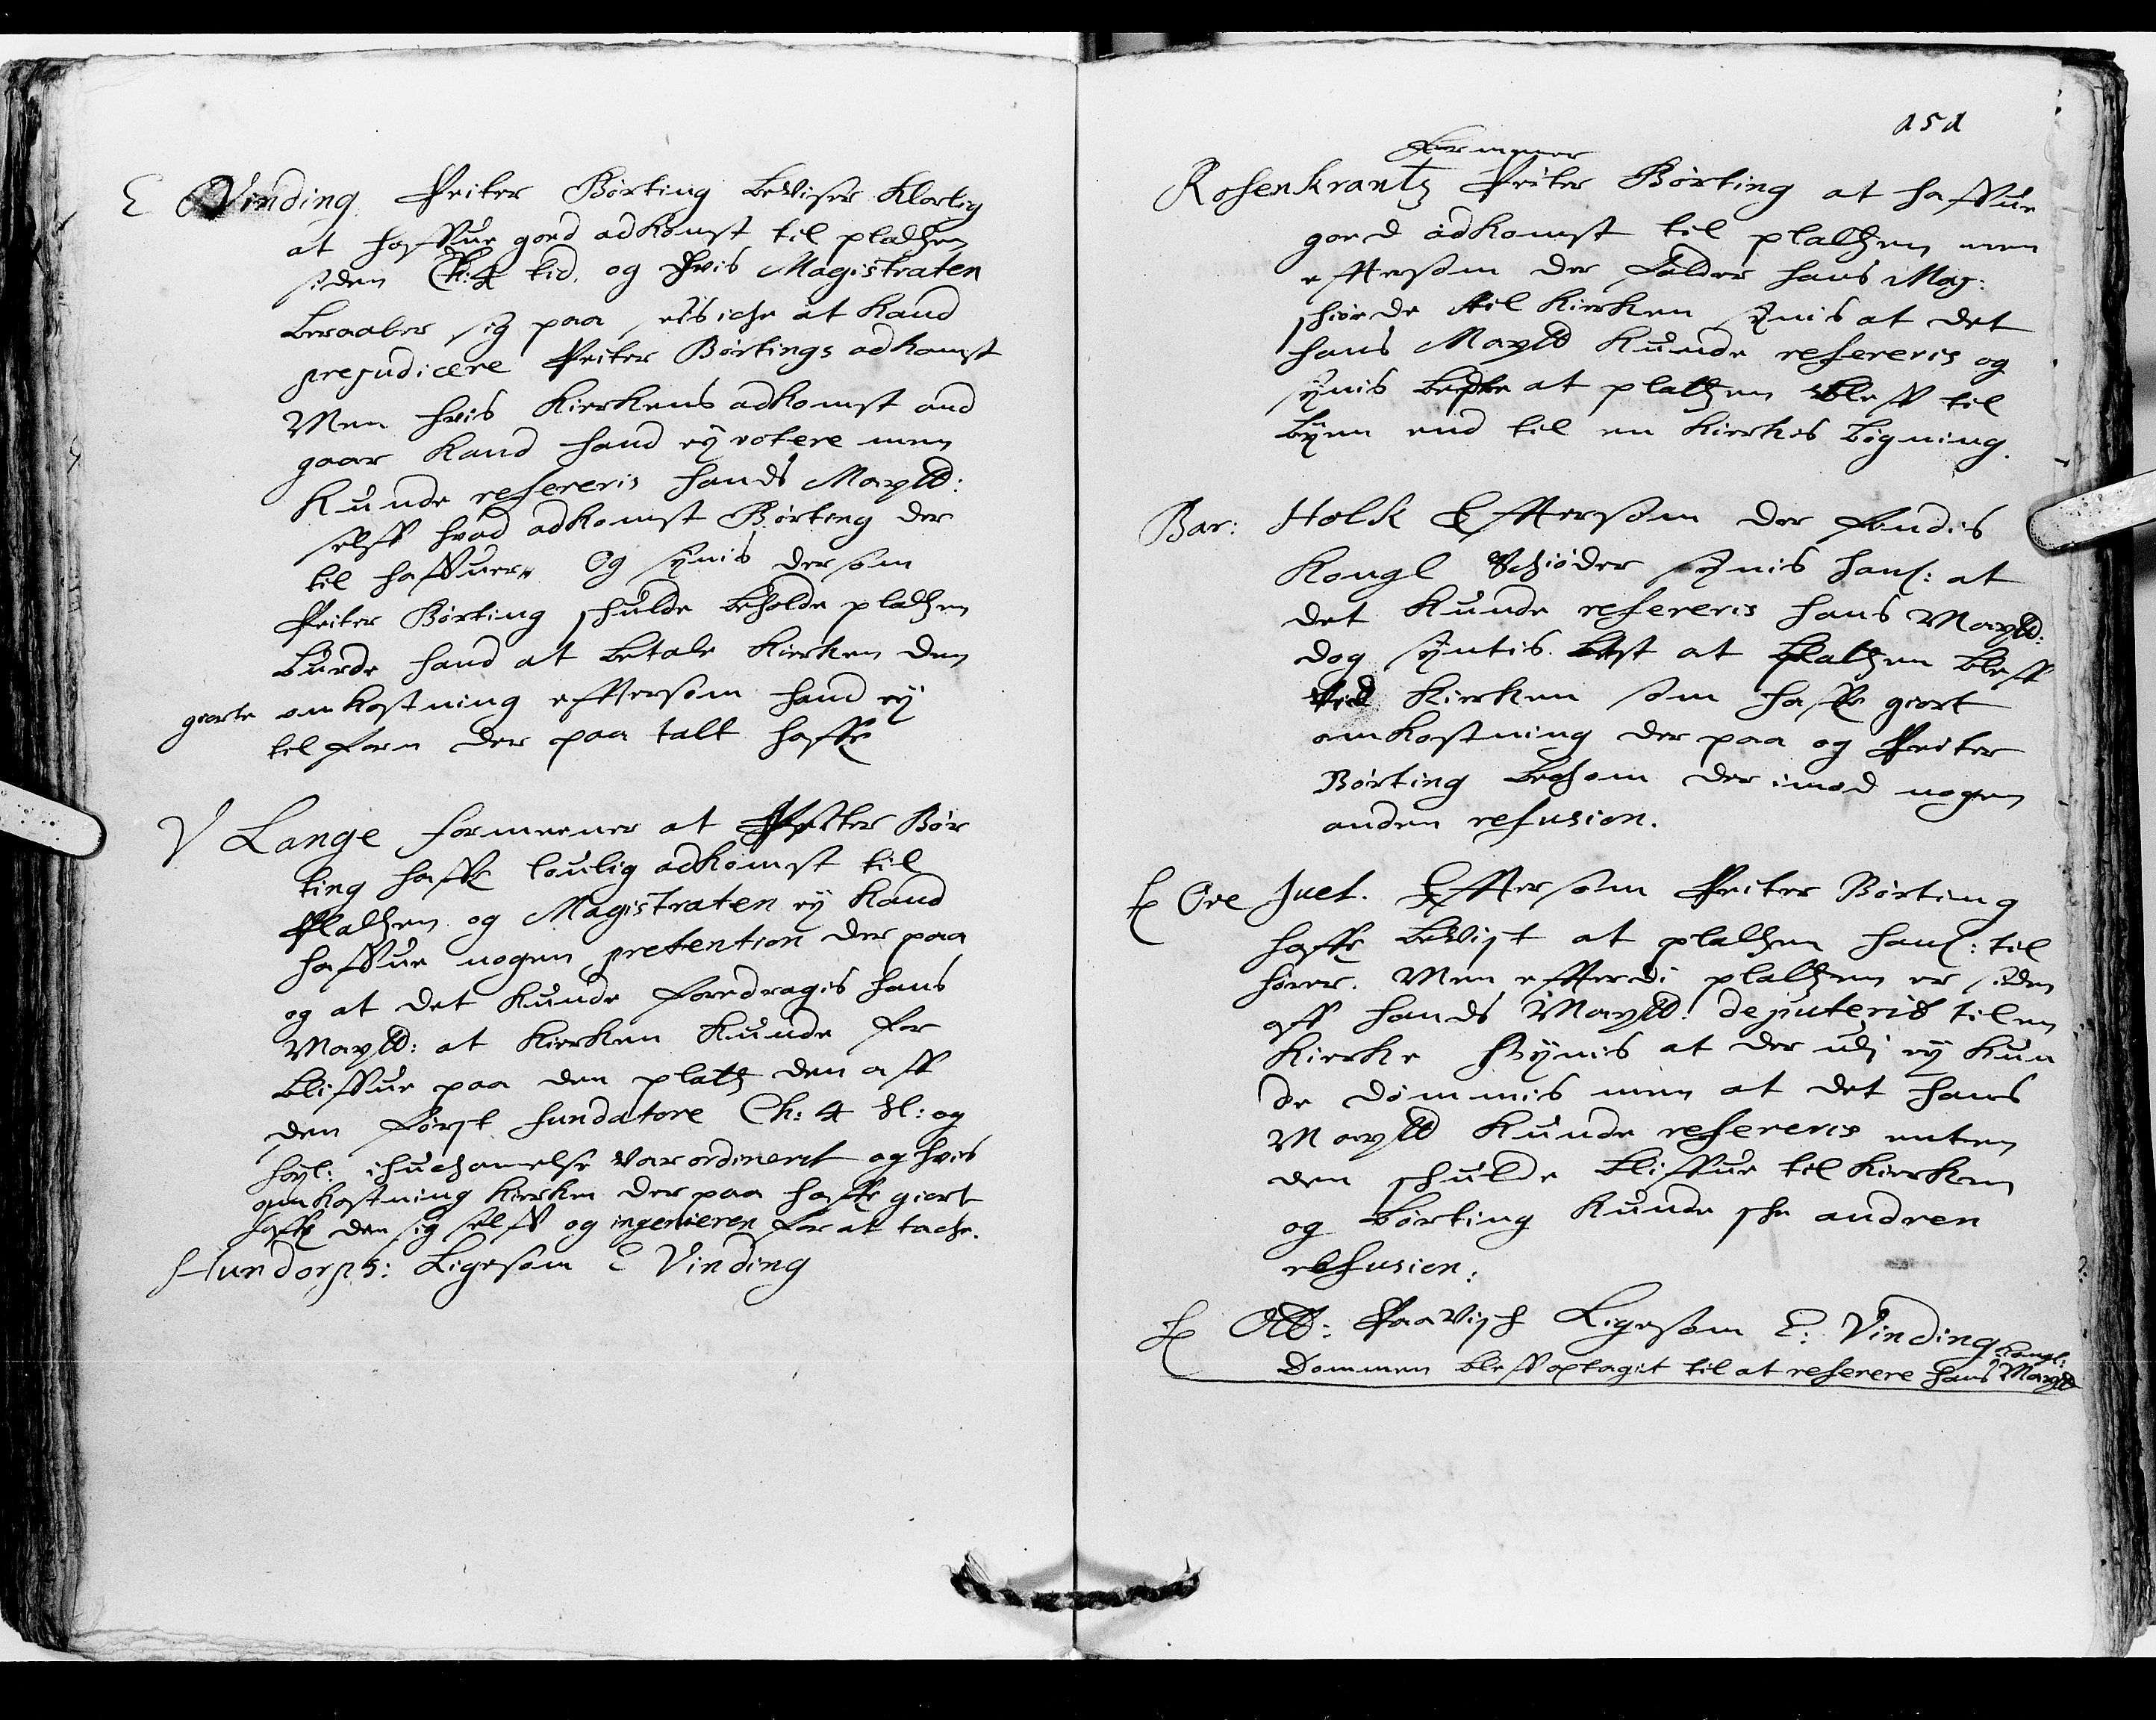 E Vinding. Peiter Børting beviser klarlig
at haffue goed adkomst til pladtzen
siden Ch: 4 tid. og hvis Magistraten
beraaber sig paa, eis iche at kand
prejudicere Peiter Børtings adkomst
Men hvis Kierkens adkomst and
gaar kand hand ej votere men
kunde refereris hands Maytt:
selff hvad adkomst Børting der
til haffuer. Og synis der som
Peiter Børting skulde beholde pladtzen
burde hand at betale Kierken den
giorte omkostning effttersom hand ej
tilforn der paa talt haffr
V Lange formeener at Peiter Bør
ting haffr loulig adkomst til
Pladtzen og Magistraten ej kand
haffue nogen pretention der paa
og at det kunde foredragis hans
Maytt: at Kierken kunde for
bliffue paa den platz den aff
den først fundatore Ch: 4 s: og
høyl: ihuchomelse var ordinerit og hvis
omkostning Kierken der paa haffr giort
haffr den sig selff og ingenieren for at tache.
Hundorph: Ligesom E Vinding
151
formeener
Rosenkrantz Peiter Børting at haffue
goed adkomst til pladtzen men
efftersom der falder hans May:
skiøde til Kierken synis at det
hans Maytt kunde refereris og
synis bedre at pladtzen bleff til
byen end til en Kierkis bygning.
Bar: Holk Efftersom der findis
Kongl Schiøder synis hans: at
det kunde refereris hans Maytt:
dog syntis best at Pladtzen bleff
ved Kierken som haffr giort
omkostning der paa og Peiter
Børting bechom der imod nogen
anden refusion.
Ove Juel. Efftersom Peiter Børting
haffr bevist at pladtzen hans: til
hører. Men effterdi pladtzen er siden
aff hands Maytt: deputerit til en
Kierke synis at der udj ej kun
de dømmis men at det hans
Maytt kunde refereris enten
den skulde bliffue til Kierken
og Børting kunde ske andren
refusion:
Ott: Paavisch Ligesom E: Vinding
Dommen bleff optagit til at referere hans Kongl: Maytt